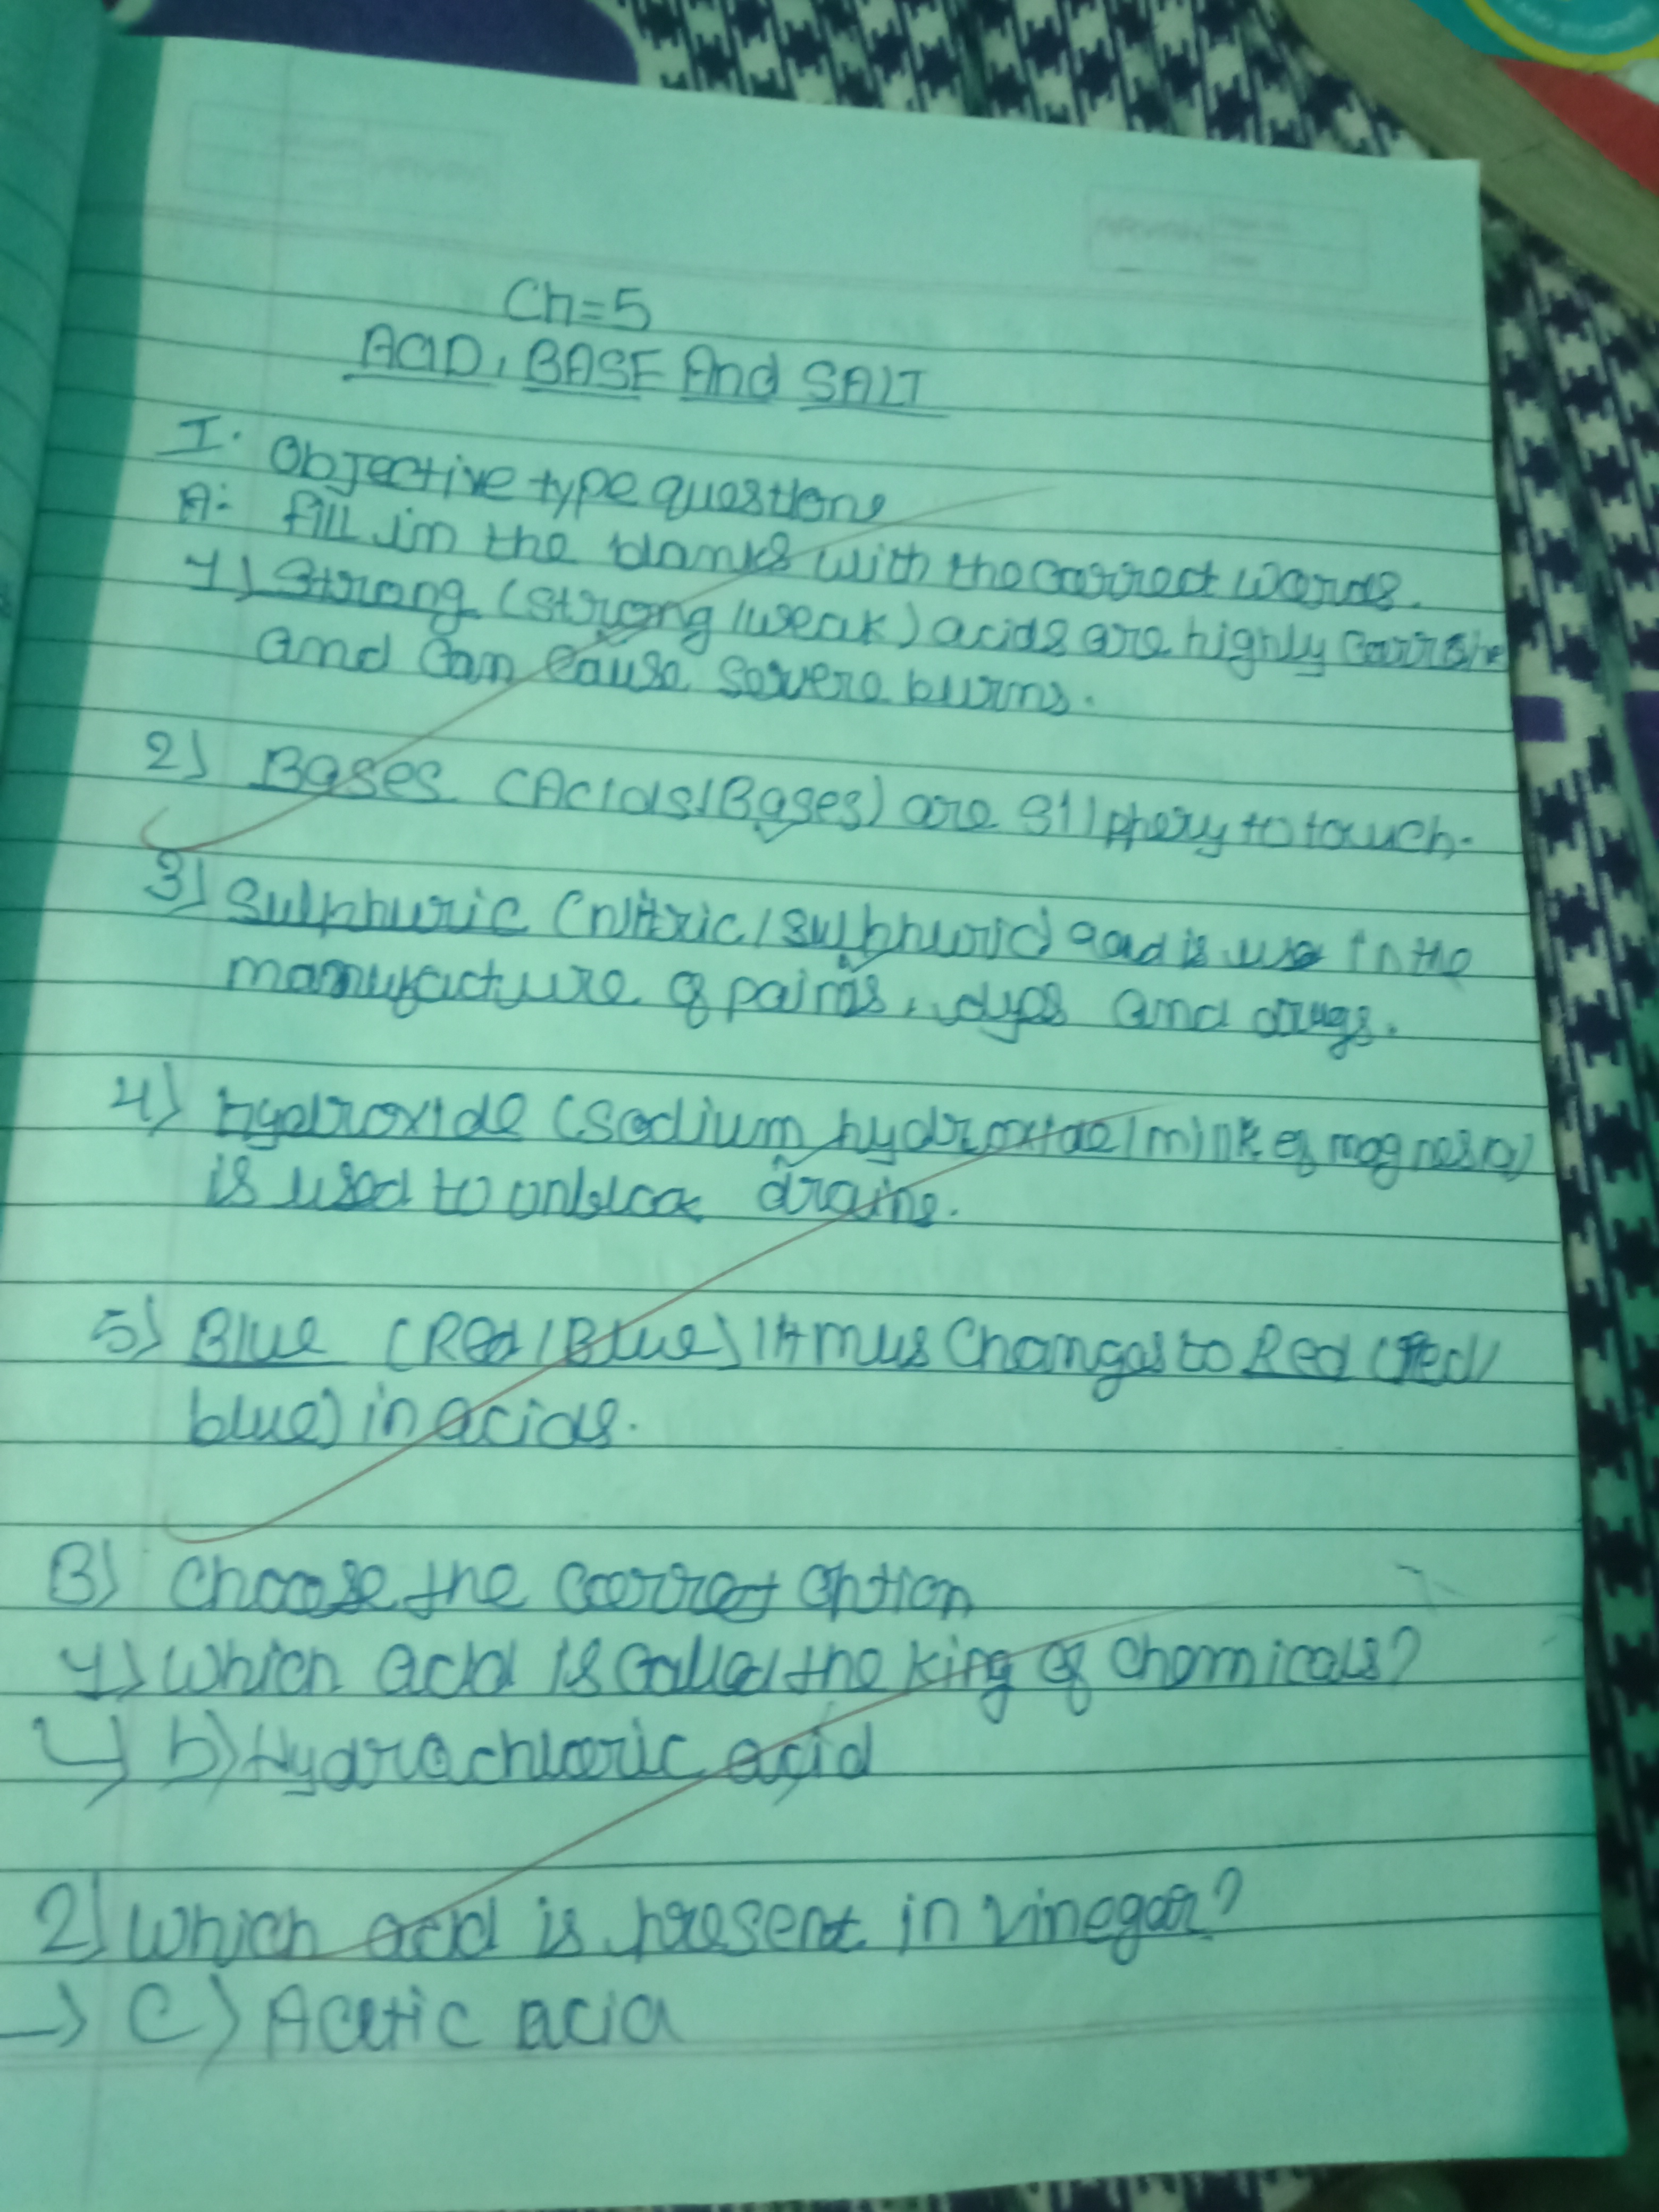 Ch=5
ACID, BASE And SALT
I. Objective type questions
A: fill in the blanks with the correct words.
1) Strong (strong/weak) acids are highly
and can cause severe burns.
2) Bases (Acids/Bases) are sllpphery to touch.
3) Sulphuric (nitric/sulphuric) acid is use in the
manufacture of paints, dyes and drugs.
4) Hydroxide (sodium hydroxide/milk of magnesa)
is used to unblock drains.
5) Blue (Red/Blue) litmus changes to Red (Red/
blue) in acids.
B) Choose the correct option
1) Which acid is called the king of chemicals?
b) Hydrachloric acid
2) Which acid is present in vinegar?
→ C) Acetic acid